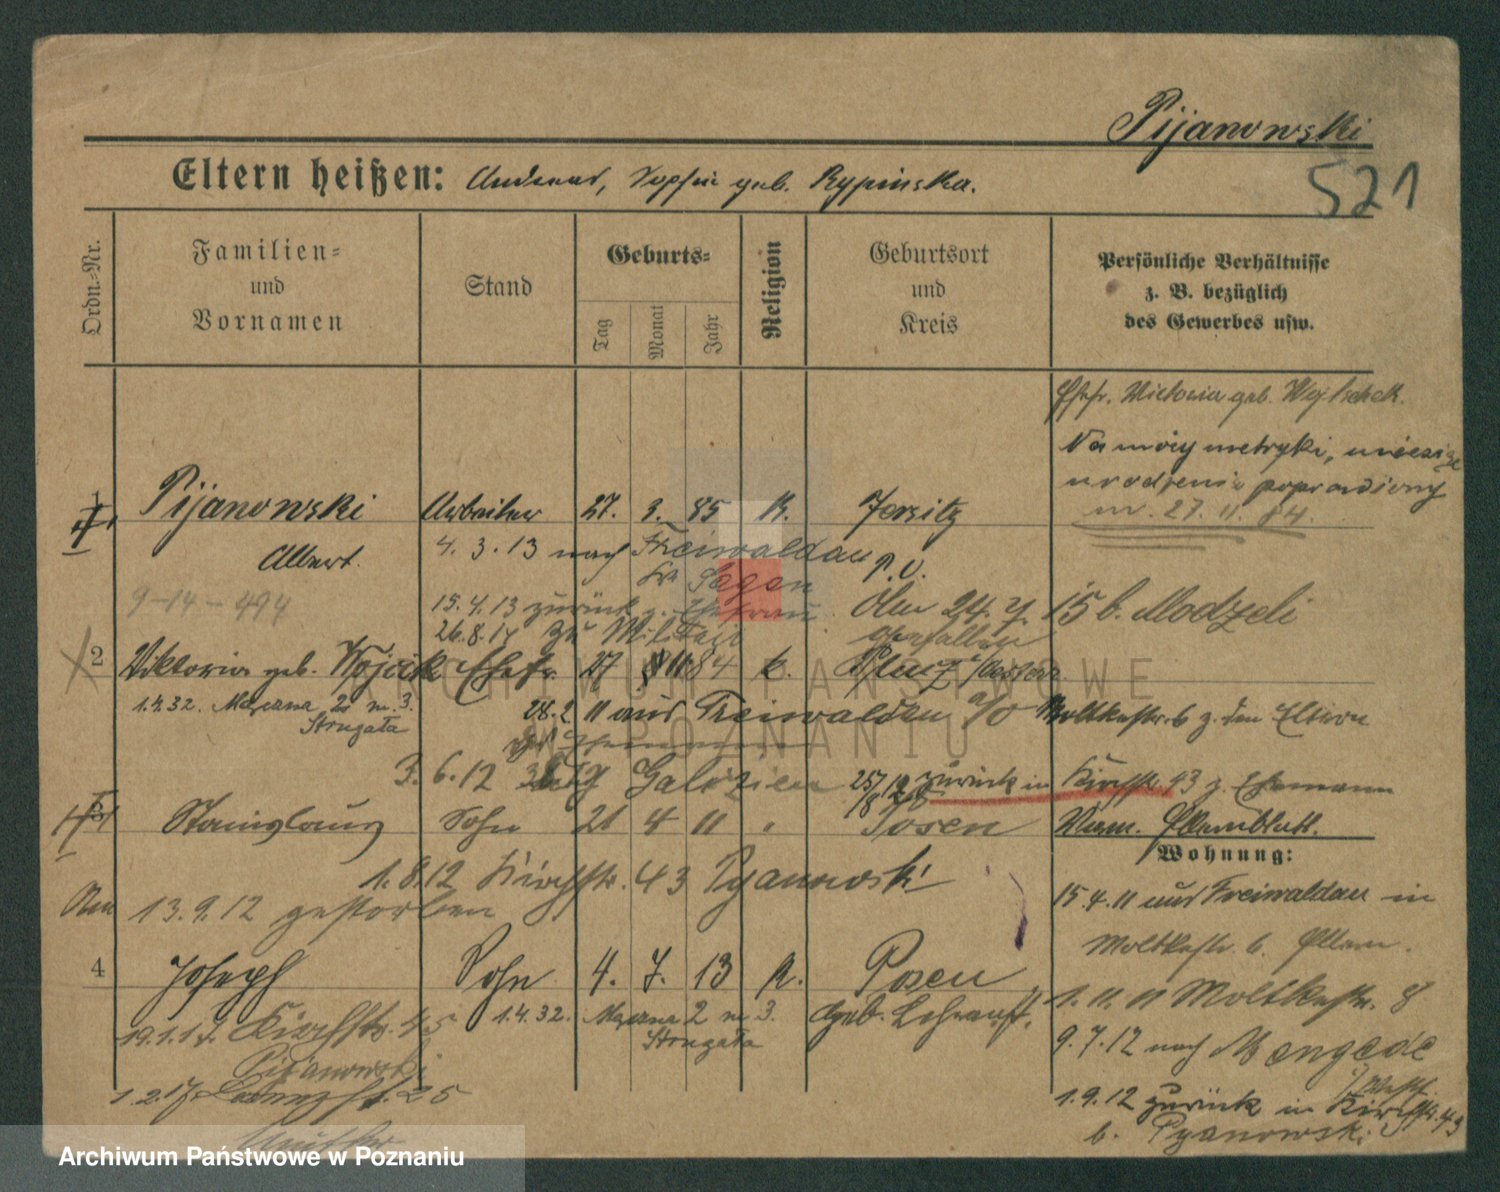 Pijanowski
521
Eltern heißen: Andreas, Sophie geb. Rypinska.
Ordn.-Nr.
Familien- und Vornamen
Stand
Geburts-
Tag
Monat
Jahr
Religion
Geburtsort und Kreis
Persönliche Verhältnisse z. B. bezüglich des Gewerbes usw.
Ehefr. Victoria geb.
Na mocy metryki,
urodzenia
nr. 27. 11. 84.
1 Pijanowski Arbeiter 27. 3. 85 K. Jersitz
Albert. 4. 3. 13 nach Freiwaldau
Kr Sagan P. O.
9-14-494
15. 4. 13 zurück z. Ehefrau
26. 8. 14 zu Militair
24. 7. 15 b. Modzeli
gefallen
2 Viktoria geb. Wojcik Ehefr. 27 11 84 k.
1.4.32. 2 m. 3.
Strugała
28. 2 11 aus Freiwaldau a/O Moltkestr. 6 z. den Eltern
3. 6. 12 Galizien 25/8 12 zurück in Kirchstr. 43 z. Ehemann
3 Stanislaus Sohn 21 4 11 " Posen
Wohnung:
1. 8. 12 Kirchstr. 43 Pyanowski
13. 9. 12 gestorben
15. 4. 11 aus Freiwaldau in
Moltkestr. 6.
4 Joseph Sohn 4. 7. 13 K. Posen
1. 11. 11 Moltkestr. 8
Kirchstr. 45 1.4.32. 2 m 3. geb. Lehranst.
Pijanowski Strugała
9. 7. 12 nach Mengede
1. 2. 17. 25
1. 9. 12 zurück in Kirchstr. 43
b. Pyanowski
ARCHIWUM PAŃSTWOWE
W POZNANIU
Archiwum Państwowe w Poznaniu